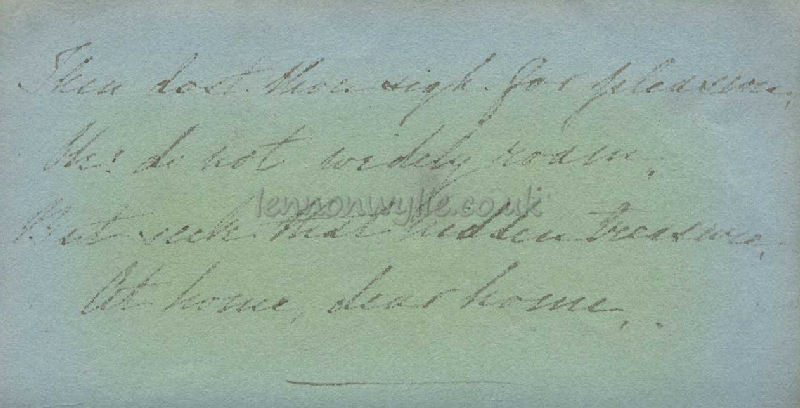 Then dost thou sigh for pleasure,
Oh! do not widely roam,
lennonwylie.co.uk
But seek that hidden treasure,
At home, dear home.